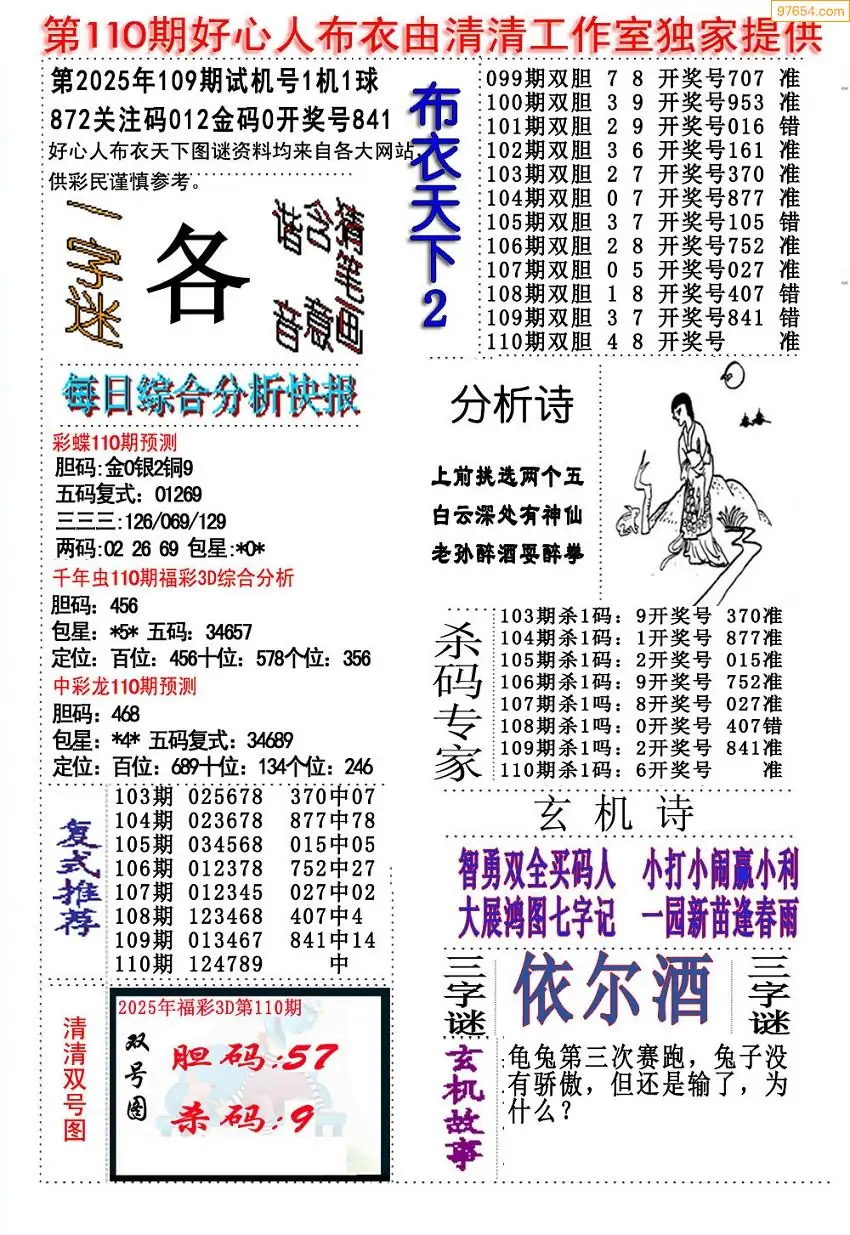 97654.com
第110期好心人布衣由清清工作室独家提供
第2025年109期试机号1机1球
872关注码012金码0开奖号841
好心人布衣天下图谜资料均来自各大网站,
供彩民谨慎参考。
一字迷
各
猜笔画
含意
谐音
布衣天下2
099期双胆 7 8 开奖号707 准
100期双胆 3 9 开奖号953 准
101期双胆 2 9 开奖号016 错
102期双胆 3 6 开奖号161 准
103期双胆 2 7 开奖号370 准
104期双胆 0 7 开奖号877 准
105期双胆 3 7 开奖号105 错
106期双胆 2 8 开奖号752 准
107期双胆 0 5 开奖号027 准
108期双胆 1 8 开奖号407 错
109期双胆 3 7 开奖号841 错
110期双胆 4 8 开奖号 准
每日综合分析快报
彩蝶110期预测
胆码:金0银2铜9
五码复式：01269
三三三:126/069/129
两码:02 26 69 包星:*0*
千年虫110期福彩3D综合分析
胆码：456
包星：*5* 五码：34657
定位：百位：456十位：578个位：356
中彩龙110期预测
胆码：468
包星：*4* 五码复式：34689
定位：百位：689十位：134个位：246
分析诗
上前挑选两个五
白云深处有神仙
老孙醉酒耍醉拳
杀码专家
103期杀1码：9开奖号 370准
104期杀1码：1开奖号 877准
105期杀1码：2开奖号 015准
106期杀1码：9开奖号 752准
107期杀1吗：8开奖号 027准
108期杀1吗：0开奖号 407错
109期杀1吗：2开奖号 841准
110期杀1码：6开奖号 准
复式推荐
103期 025678 370中07
104期 023678 877中78
105期 034568 015中05
106期 012378 752中27
107期 012345 027中02
108期 123468 407中4
109期 013467 841中14
110期 124789 中
玄机诗
智勇双全买码人 小打小闹赢小利
大展鸿图七字记 一园新苗逢春雨
三字谜
依尔酒
三字谜
清清双号图
2025年福彩3D第110期
双号图
胆码:57
杀码:9
玄机故事
龟兔第三次赛跑，兔子没
有骄傲，但还是输了，为
什么？